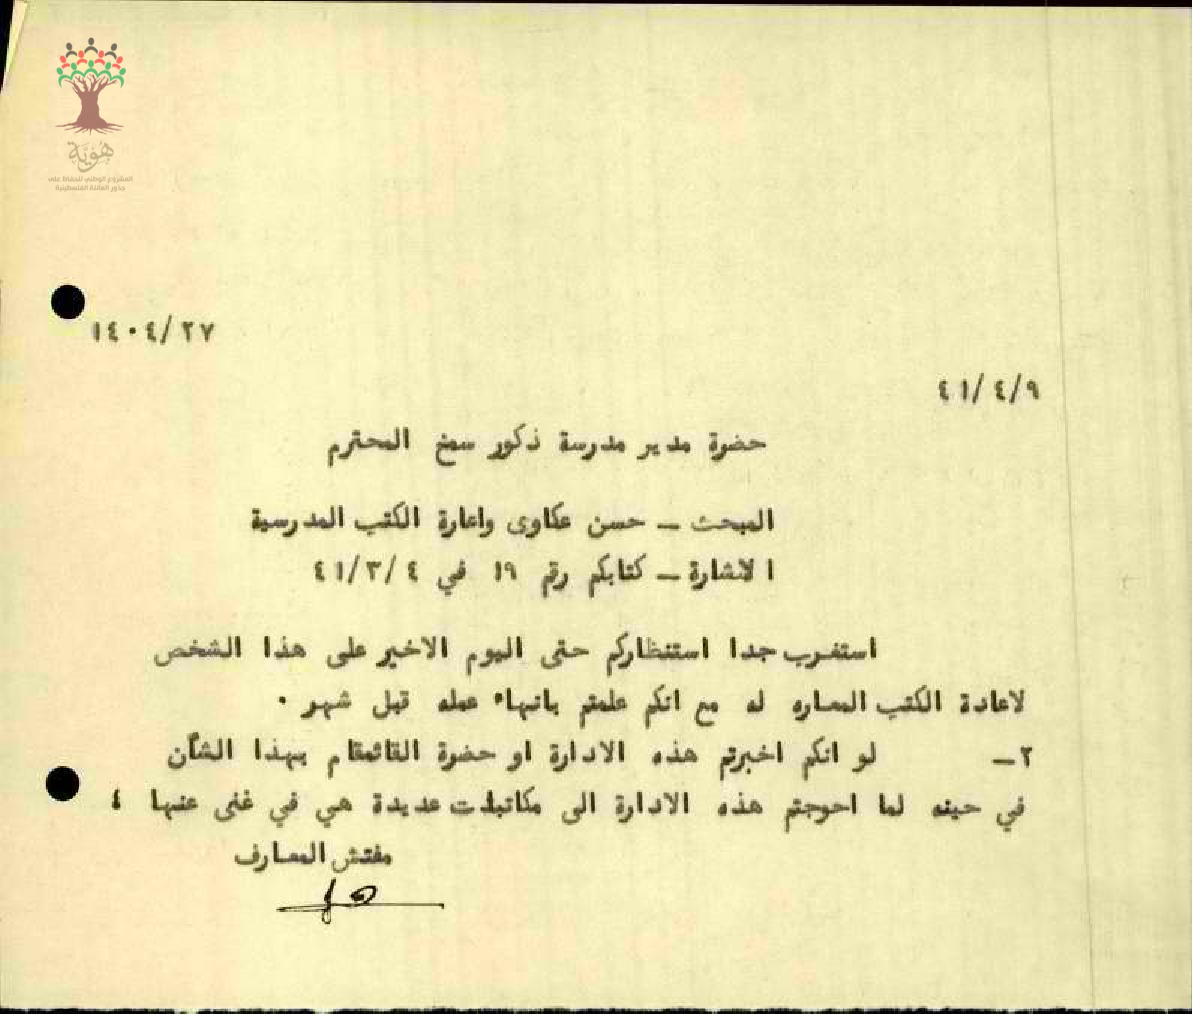 هوية
المشروع الوطني للحفاظ على
جذور العائلة الفلسطينية
١٤٠٤/٢٧
٤١/٤/٩
حضرة مدير مدرسة ذكور سمخ المحترم
المبحث – حسن عكاوى واعارة الكتب المدرسية
الاشارة – كتابكم رقم ١٩ في ٤١/٣/٤
استغرب جدا استنظاركم حتى اليوم الاخير على هذا الشخص
لاعادة الكتب المعاره له مع انكم علمتم بانهاء عمله قبل شهر .
٢– لو انكم اخبرتم هذه الادارة او حضرة القائمقام بهذا الشأن
في حينه لما احوجتم هذه الادارة الى مكاتبات عديدة هي في غنى عنها ؛
مفتش المعارف